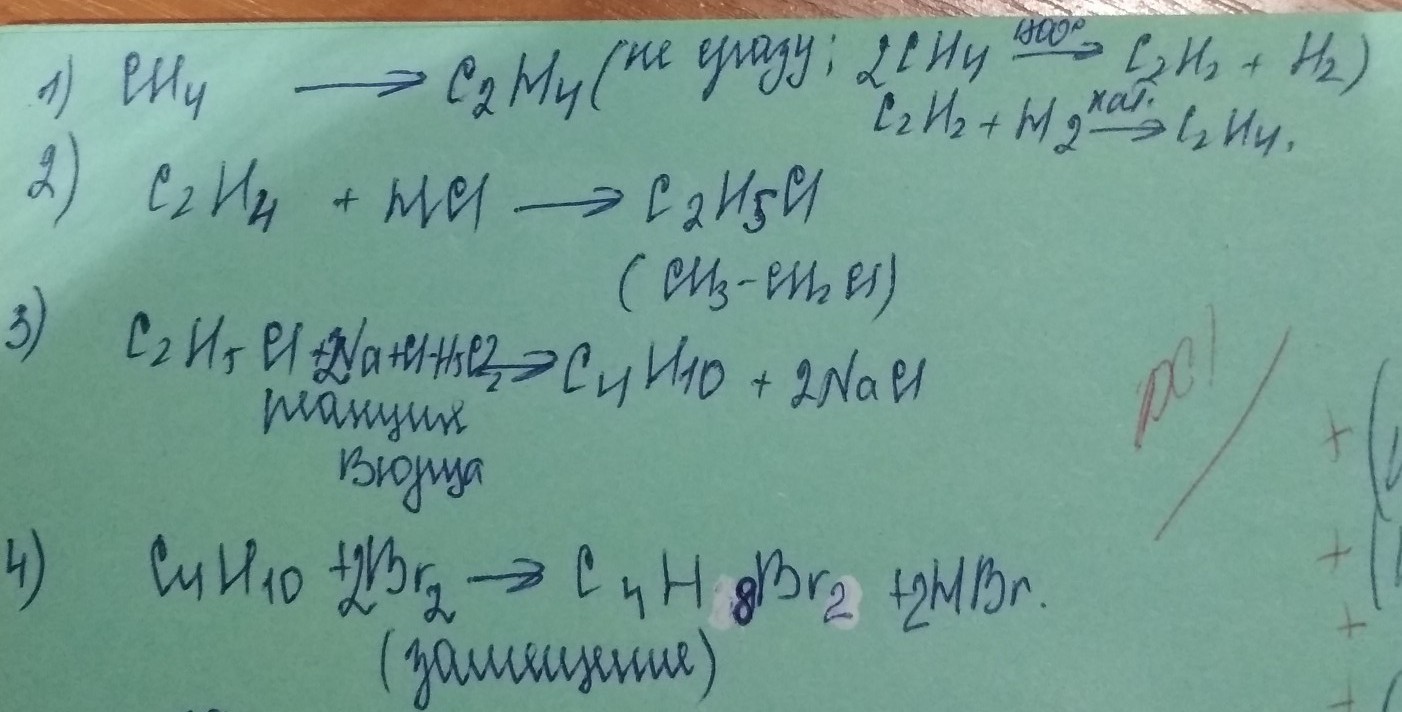 1) CH4 → C2H4 (не сразу; 2CH4 1400° → C2H2 + H2)
C2H2 + H2 кат. → C2H4.
2) C2H4 + HCl → C2H5Cl
(CH3-CH2Cl)
3) C2H5Cl +2Na+Cl-H5C2 → C4H10 + 2NaCl
реакция
Вюрца
4) C4H10 +2Br2 → C4H8Br2 +2HBr.
(замещение)